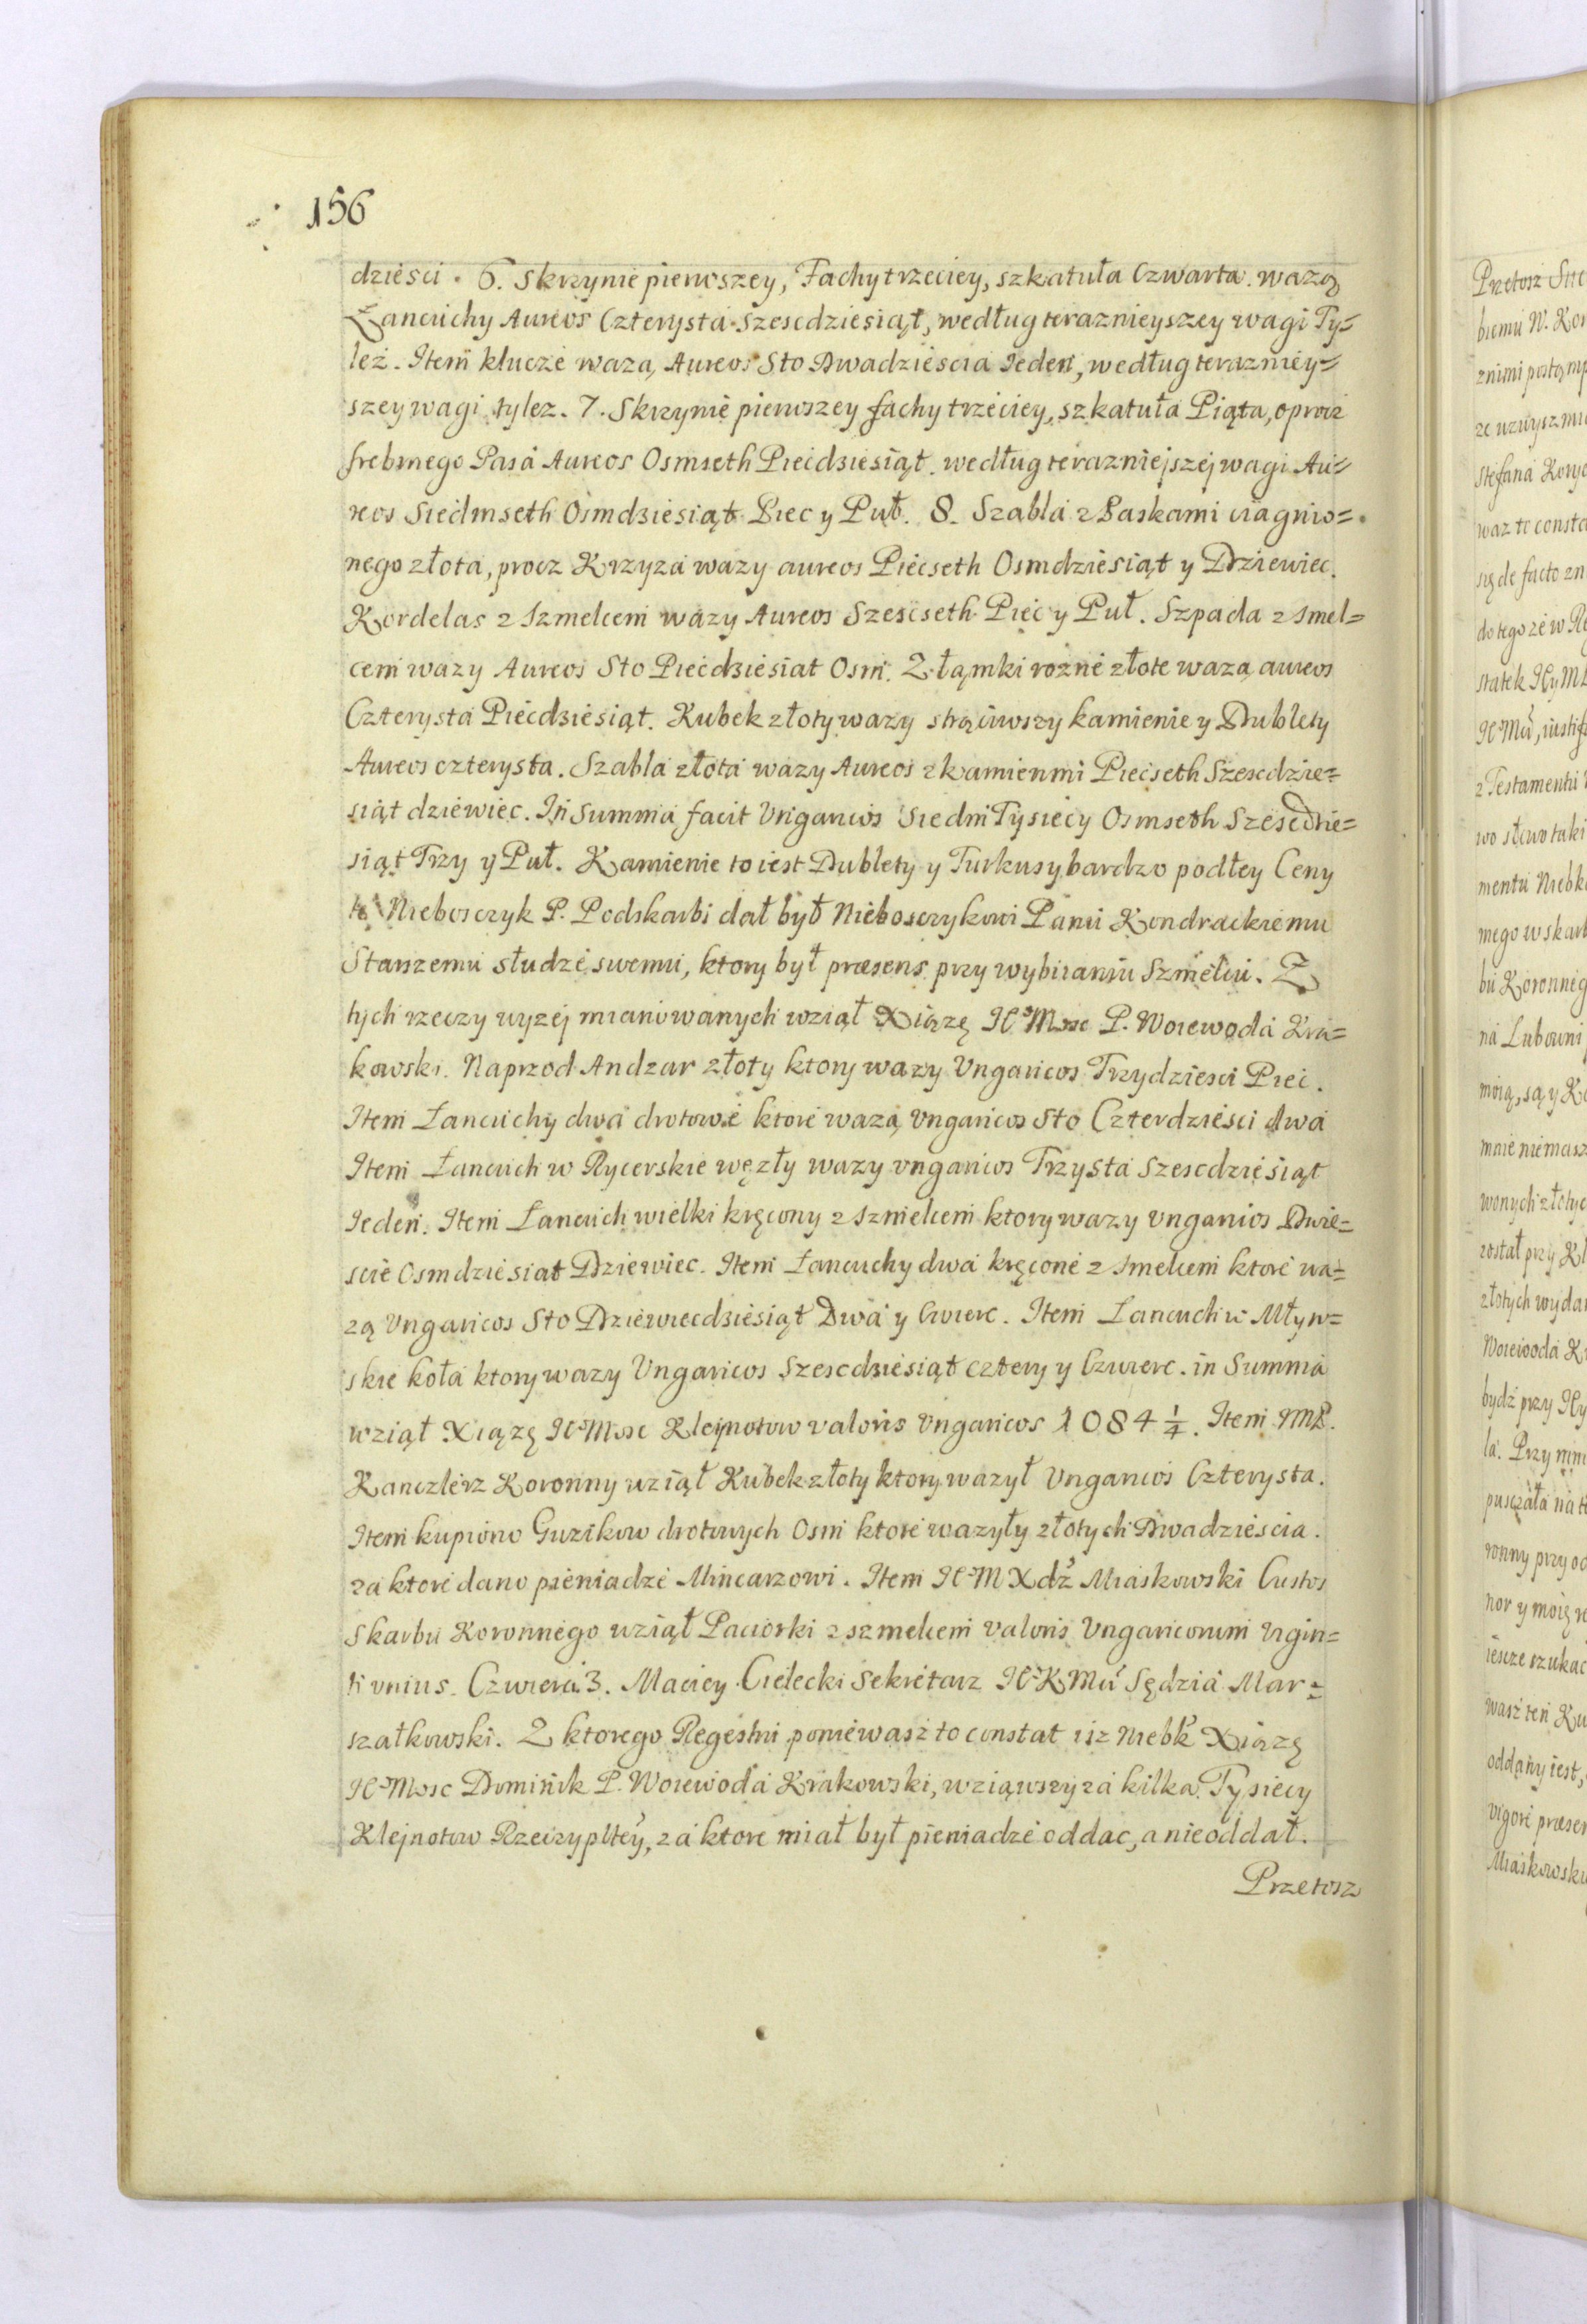 156
dziesci. 6. Skrzynie pierwszey, Fachy trzeciey, szkatuła Czwarta. wazą
Łancuchy Aureos Czterysta Szescdziesiąt, według teraznieyszey wagi Ty=
lez. Item klucze wazą Aureos Sto Dwadziescia Ieden, według terazniey=
szey wagi tylez. 7. Skrzynie pierwszey fachy trzeciey, szkatuła Piąta, oprocz
srebrnego Pasa Aureos Osmseth Piecdziesiąt. według terazniejszej wagi Au=
reos Siedmseth Osmdziesiąt Piec y Puł. 8. Szabla z Paskami ciagnio=
nego złota, procz Krzyza wazy aureos Piecseth Osmdziesiąt y Dziewiec.
Kordelas z Szmelcem wazy Aureos Szescseth Piec y Puł. Szpada z smel=
cem wazy Aureos Sto Piecdziesiat Osm. Złąmki rozne złote wazą aureos
Czterysta Piecdziesiąt. Kubek złoty wazy strąciwszy kamienie y Dublety
Aureos czterysta. Szabla złota wazy Aureos z kamienmi Piecseth Szescdzie=
siąt dziewiec. In Summa facit Ungaricos Siedm Tysiecy Osmseth Szescdzie=
siąt Trzy y Puł. Kamienie to iest Dublety y Turkusy bardzo podłey Ceny
Nieboszczyk P. Podskarbi dał był Nieboszczykowi Panu Kondrackiemu
Starszemu słudze swemu, ktory był præsens przy wybiraniu Szmelcu. Z
tych rzeczy wyzej mianowanych wziął Xiązę IE°Mosc P. Woiewoda Kra=
kowski. Naprzod Andzar złoty ktory wazy Ungaricos Trzydziesci Piec.
Item Łancuchy dwa drotowe ktore wazą Ungaricos Sto Czterdziesci dwa
Item Łancuch w Rycerskie węzły wazy ungaricos Trzysta Szescdziesiąt
Ieden. Item Łancuch wielki kręcony z szmelcem ktory wazy ungaricos Dwie=
scie Osmdziesiat Dziewiec. Item Łancuchy dwa kręcone z smelcem ktore wa=
zą Ungaricos Sto Dziewiecdziesiąt Dwa y Cwierc. Item Łancuch w Młyn=
skie koła ktory wazy Ungaricos Szescdziesiąt cztery y Czwierc. in Summa
wziął Xiązę IE°Mosc Klejnotow valoris Ungaricos 1084 1/4. Item IMP.
Kanczlerz Koronny wziął Kubek złoty ktory wazył Ungaricos Czterysta.
Item kupiono Guzikow drotowych Osm ktore wazyły złotych Dwadziescia.
za ktore dano pieniadze Mincarzowi. Item IE°M Xdz Miaskowski Custos
Skarbu Koronnego wziął Paciorki z szmelcem valoris Ungaricorum Vigin=
ti unius. Czwierci 3. Maciey Cielecki Sekretarz IE°KMci Sędzia Mar=
szałkowski. Z ktorego Regestru poniewasz to constat isz niebk Xiązę
IE°Mosc Dominik P. Woiewoda Krakowski, wziąwszy za kilka Tysiecy
Klejnotow Rzeczypltey, za ktore miał był pieniadze oddac, a nieoddał.
Przetosz